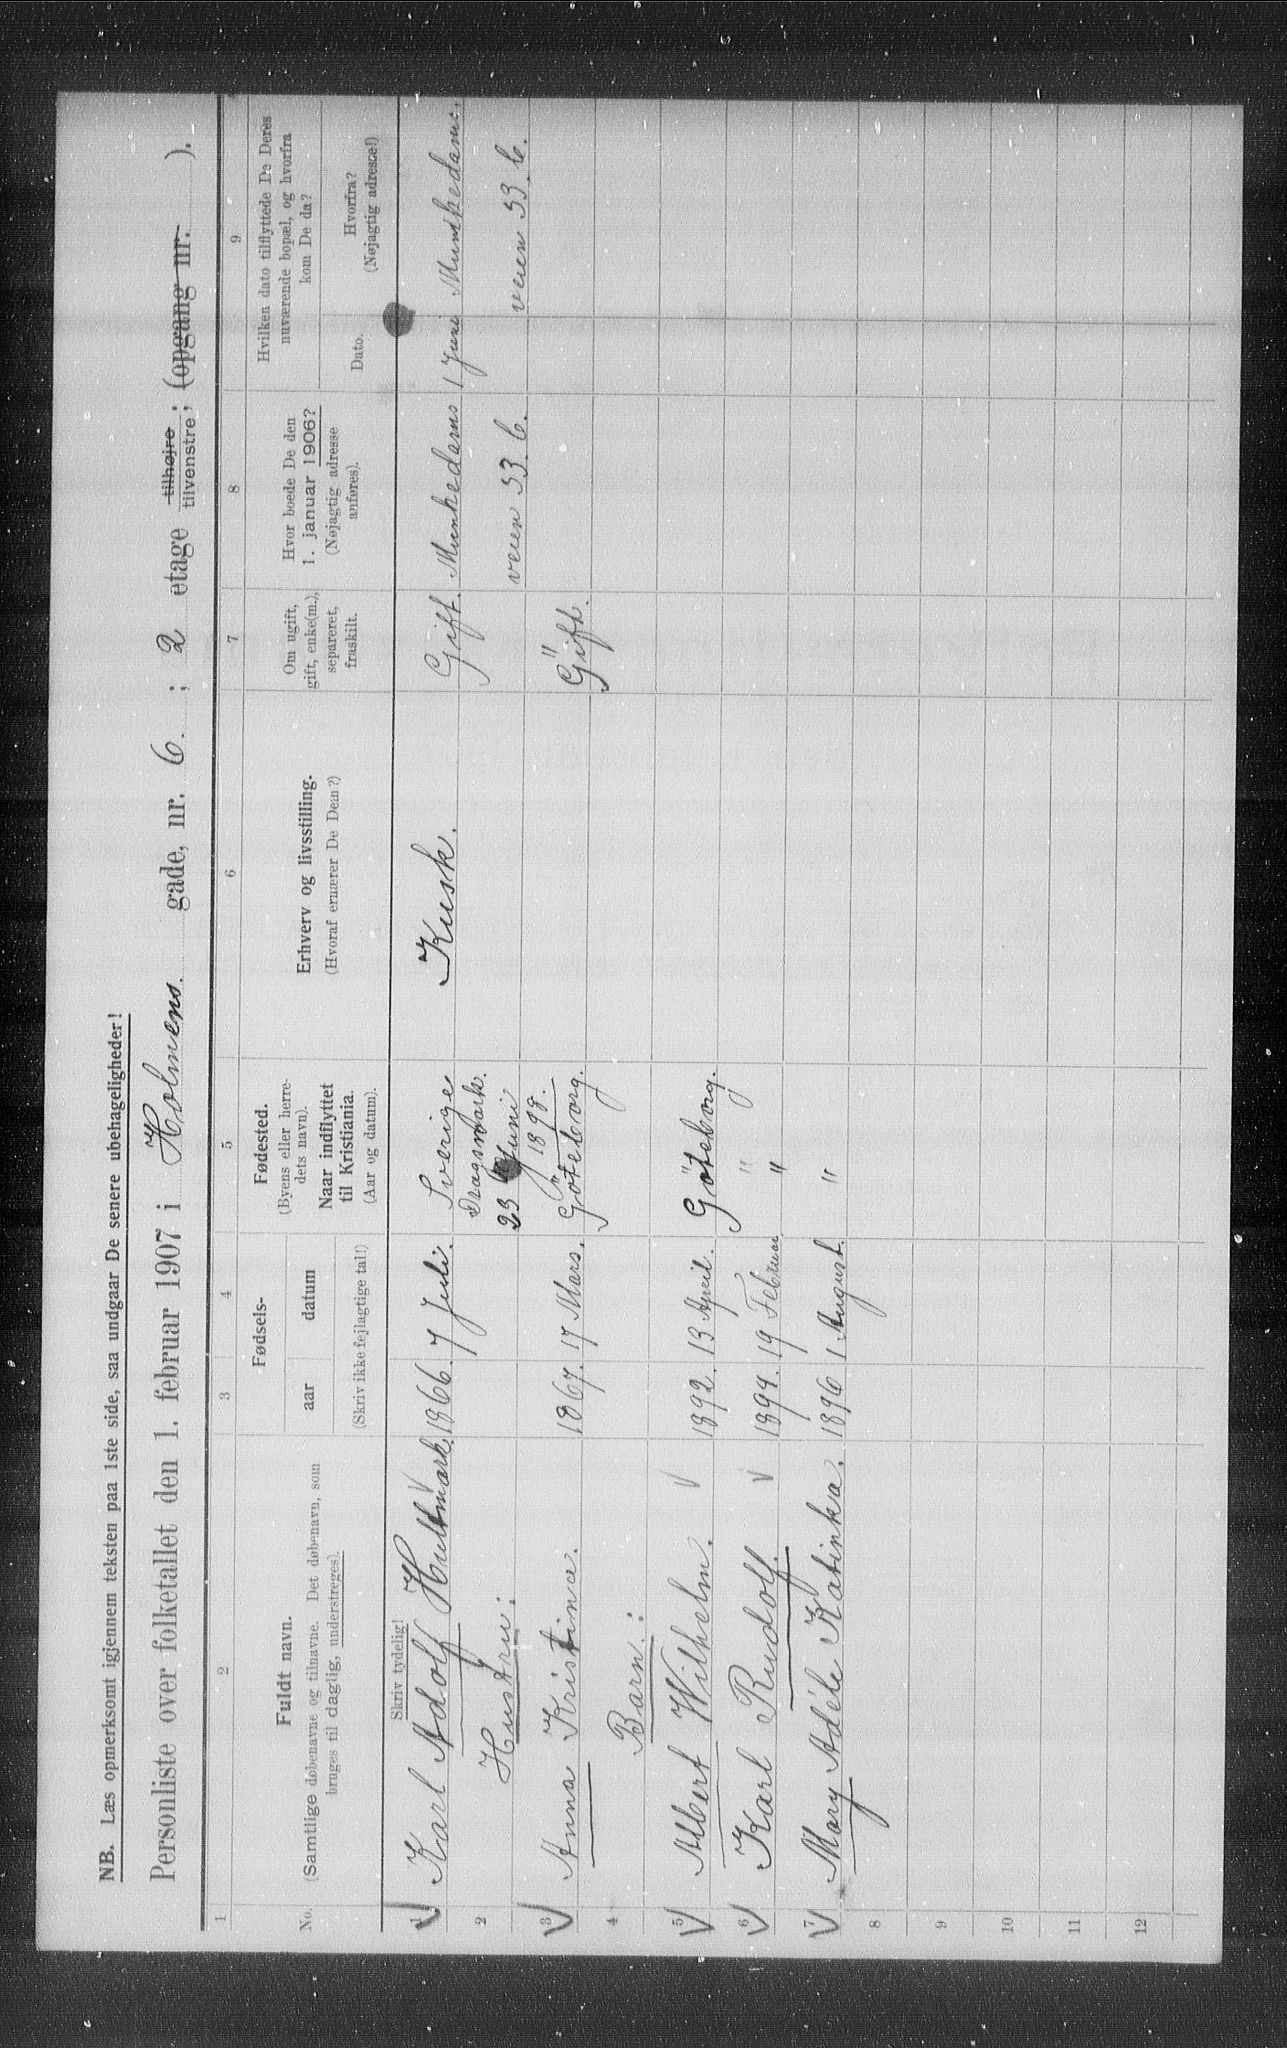 NB. Læs opmerksomt igjennem teksten paa 1ste side, saa undgaar De senere ubehageligheder!
Personliste over folketallet den 1. februar 1907 i Holmens gade, nr. 6. ; 2 etage tilhøjre tilvenstre; (opgang nr. ).
1 2 3 4 5 6 7 8 9
No. Fuldt navn.
(Samtlige døbenavne og tilnavne. Det døbenavn, som
bruges til daglig, understreges).
Skriv tydelig!
Fødsels-
aar datum
(Skriv ikke fejlagtige tal!)
Fødested.
(Byens eller herre-
dets navn).
Naar indflyttet
til Kristiania.
(Aar og datum).
Erhverv og livsstilling.
(Hvoraf ernærer De Dem?)
Om ugift,
gift, enke(m.),
separeret,
fraskilt.
Hvor boede De den
1. januar 1906?
(Nøjagtig adresse
anføres).
Hvilken dato tilflyttede De Deres
nuværende bopæl, og hvorfra
kom De da?
Dato. Hvorfra?
(Nøjagtig adresse!)
1 Karl Adolf Hultmark. 1866. 7 Juli. Sverige Kusk. Gift. Munkedams 1 Juni Munkedams.
2 Hustru: Dragsmark. veien 33. b. veien 33. b.
23 Juni
1898.
3 Anna Kristina. 1867. 17 Mars. Göteborg. Gift.
4 Barn:
5 Albert Wilhelm. 1892. 13 April. Göteborg.
6 Karl Rudolf. 1894. 19 Februar " "
7 Mary Adéle Katinka. 1896 1 August. "
8
9
10
11
12